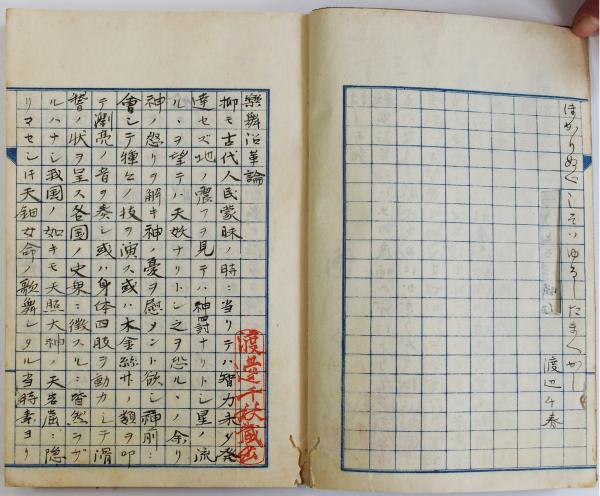 渡辺千春
樂舞沿革論
抑モ古代人民蒙昧ノ時ニ当リテハ智力未タ発
達セズ地ノ震フヲ見テハ神罰ナリトシ星ノ流
ルヽヲ望テハ天妖ナリトシ之ヲ恐ルヽノ余リ
神ノ怒リヲ解キ神ノ憂ヲ慰メント欲シ神前ニ
會シテ種々ノ技ヲ演ス或ハ木金絲竹ノ類ヲ叩
テ瀏亮ノ音ヲ奏シ或ハ身体四肢ヲ動カシテ滑
稽ノ状ヲ呈ス各国ノ史果ニ徴スルニ皆然ラザ
ルハナシ我国ノ如キモ天照大神ノ天岩窟ニ隠
リマセシ時天鈿女命ノ歌舞シタル当時素ヨリ
渡邊千秋蔵書